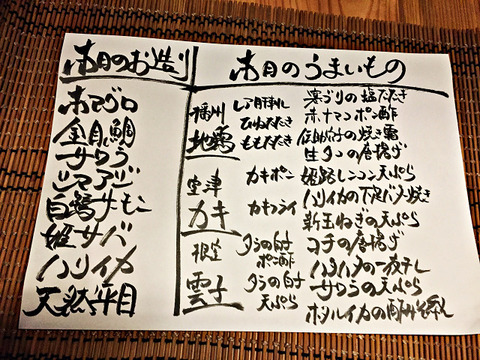 本日のお造り
本マグロ
金目鯛
サワラ
シマアジ
白鷺サーモン
姫サバ
ハリイカ
天然平目
本日のうまいもの
播州
地鶏
レア肝刺し
ひねたたき
ももたたき
室津
カキ
カキポン
カキフライ
根室
雲子
タラの白子
ポン酢
タラの白子
天ぷら
寒ブリの塩たたき
赤ナマコポン酢
の焼き霜
生タコの唐揚げ
姫路レンコン天ぷら
ハリイカの下足バター焼き
新玉ねぎの天ぷら
コチの唐揚げ
ハタハタの一夜干し
サワラの天ぷら
ホタルイカの酢みそ添え